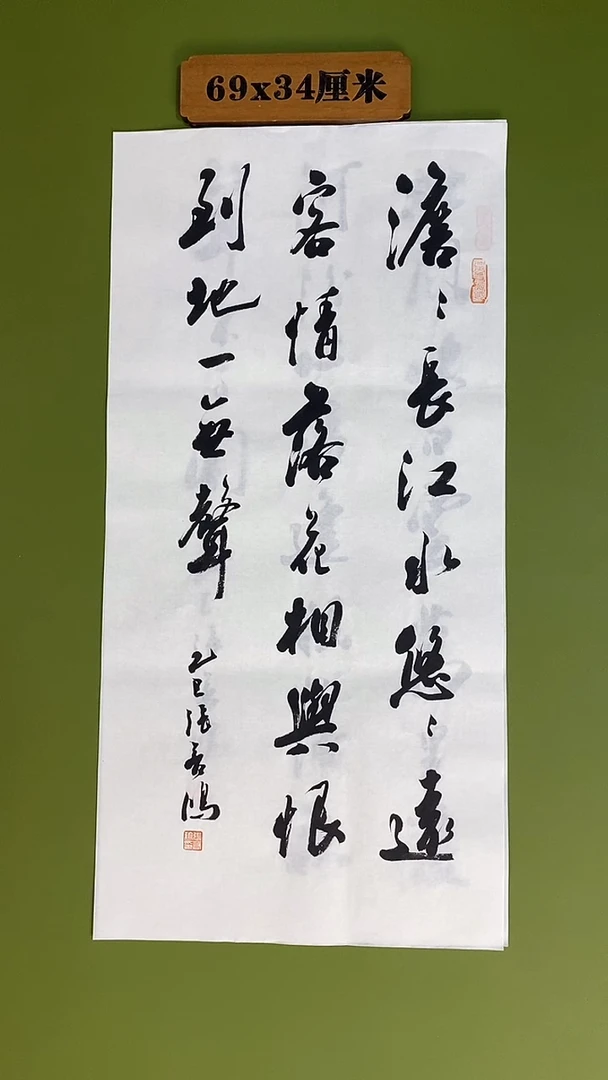 69x34厘米
澹〻長江水悠〻遠
客情落花相與恨
到地一無聲
乙巳張